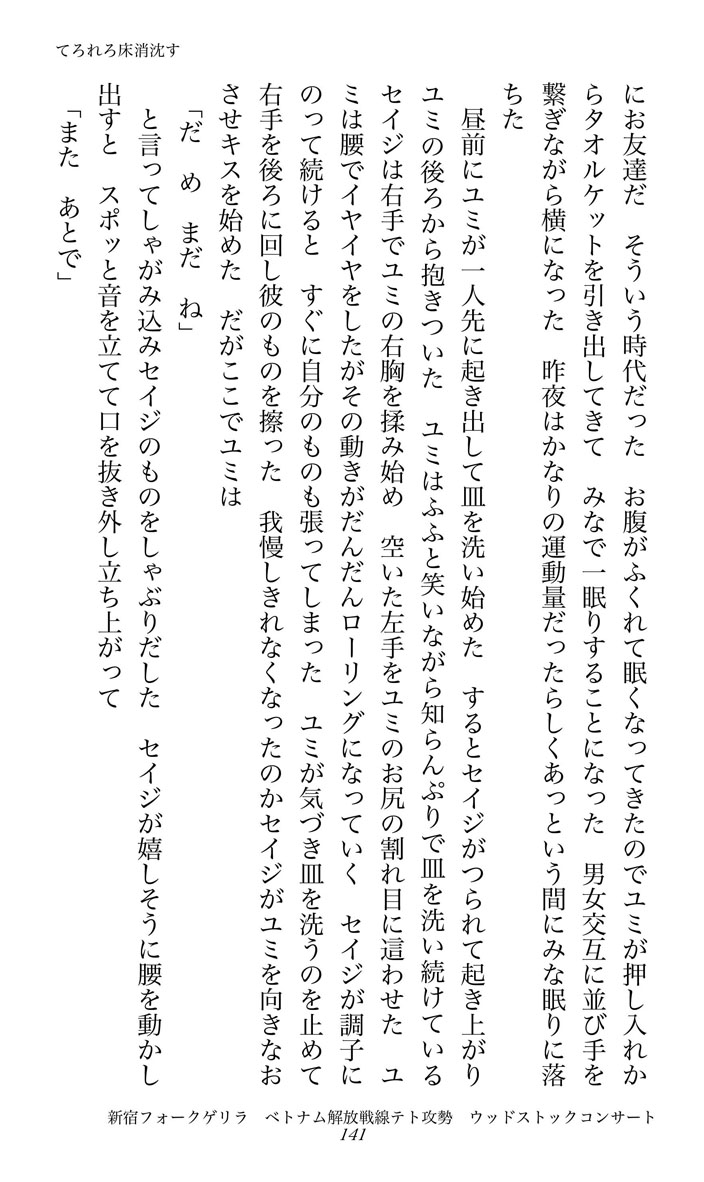 てろれろ床消沈す
にお友達だ　そういう時代だった　お腹がふくれて眠くなってきたのでユミが押し入れか
らタオルケットを引き出してきて　みなで一眠りすることになった　男女交互に並び手を
繋ぎながら横になった　昨夜はかなりの運動量だったらしくあっという間にみな眠りに落
ちた
　昼前にユミが一人先に起き出して皿を洗い始めた　するとセイジがつられて起き上がり
ユミの後ろから抱きついた　ユミはふふと笑いながら知らんぷりで皿を洗い続けている
セイジは右手でユミの右胸を揉み始め　空いた左手をユミのお尻の割れ目に這わせた　ユ
ミは腰でイヤイヤをしたがその動きがだんだんローリングになっていく　セイジが調子に
のって続けると　すぐに自分のものも張ってしまった　ユミが気づき皿を洗うのを止めて
右手を後ろに回し彼のものを擦った　我慢しきれなくなったのかセイジがユミを向きなお
させキスを始めた　だがここでユミは
「だ　め　まだ　ね」
　と言ってしゃがみ込みセイジのものをしゃぶりだした　セイジが嬉しそうに腰を動かし
出すと　スポッと音を立てて口を抜き外し立ち上がって
「また　あとで」
新宿フォークゲリラ　ベトナム解放戦線テト攻勢　ウッドストックコンサート
141